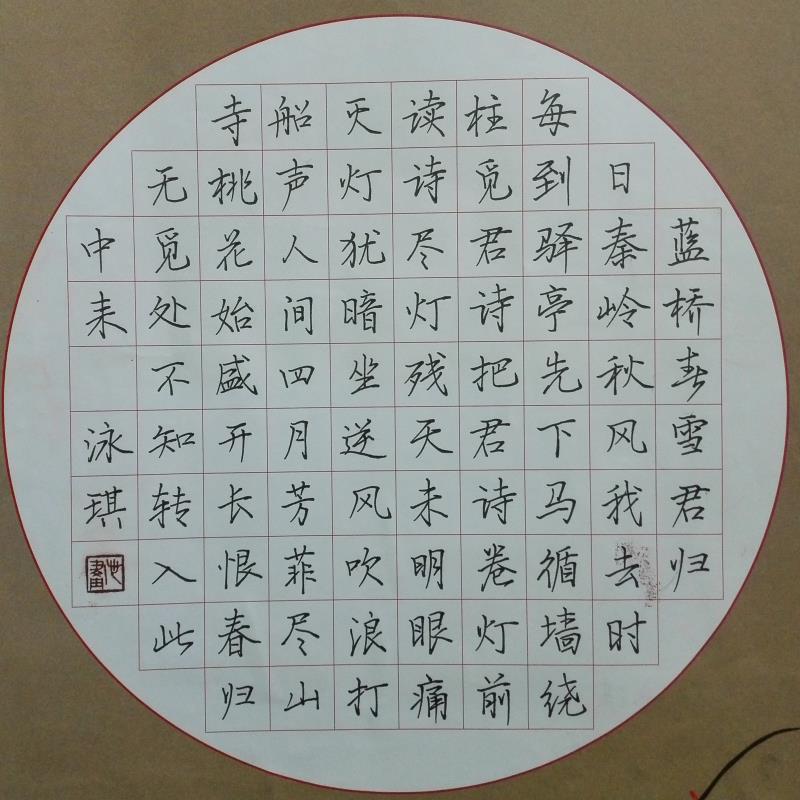 蓝桥春雪君归
日秦岭秋风我去时
每到驿亭先下马循墙绕
柱觅君诗把君诗卷灯前
读诗尽灯残天未明眼痛
灭灯犹暗坐逆风吹浪打
船声人间四月芳菲尽山
寺桃花始盛开长恨春归
无觅处不知转入此
中来 泳琪